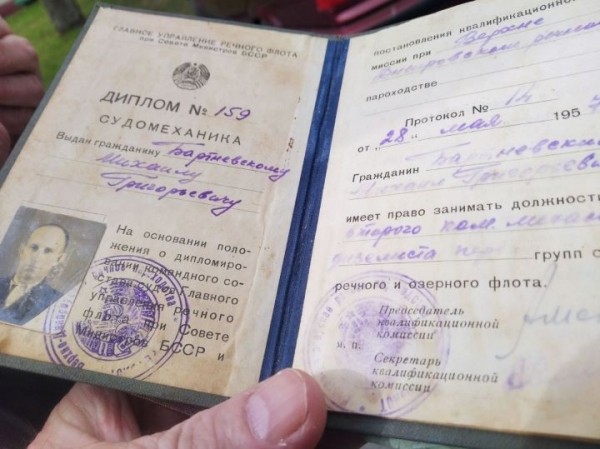 ГЛАВНОЕ УПРАВЛЕНИЕ РЕЧНОГО ФЛОТА
при Совете Министров БССР
ДИПЛОМ № 159
СУДОМЕХАНИКА
Выдан гражданину Бартневскому
Михаилу
Григорьевичу
На основании поло-
жения о дипломиро-
вании командного со-
става судов Главного
управления речного
флота при Совете
Министров БССР и
постановления квалификационной
миссии при Верхне
Днепровском
пароходстве
Протокол № 14
от „28" мая 195
Гражданин Бартневский
Михаил Григорьевич
имеет право занимать должность
второго пом. механ
групп с
речного и озерного флота.
Председатель
квалификационной
комиссии
м. п.
Секретарь
квалификационной
комиссии